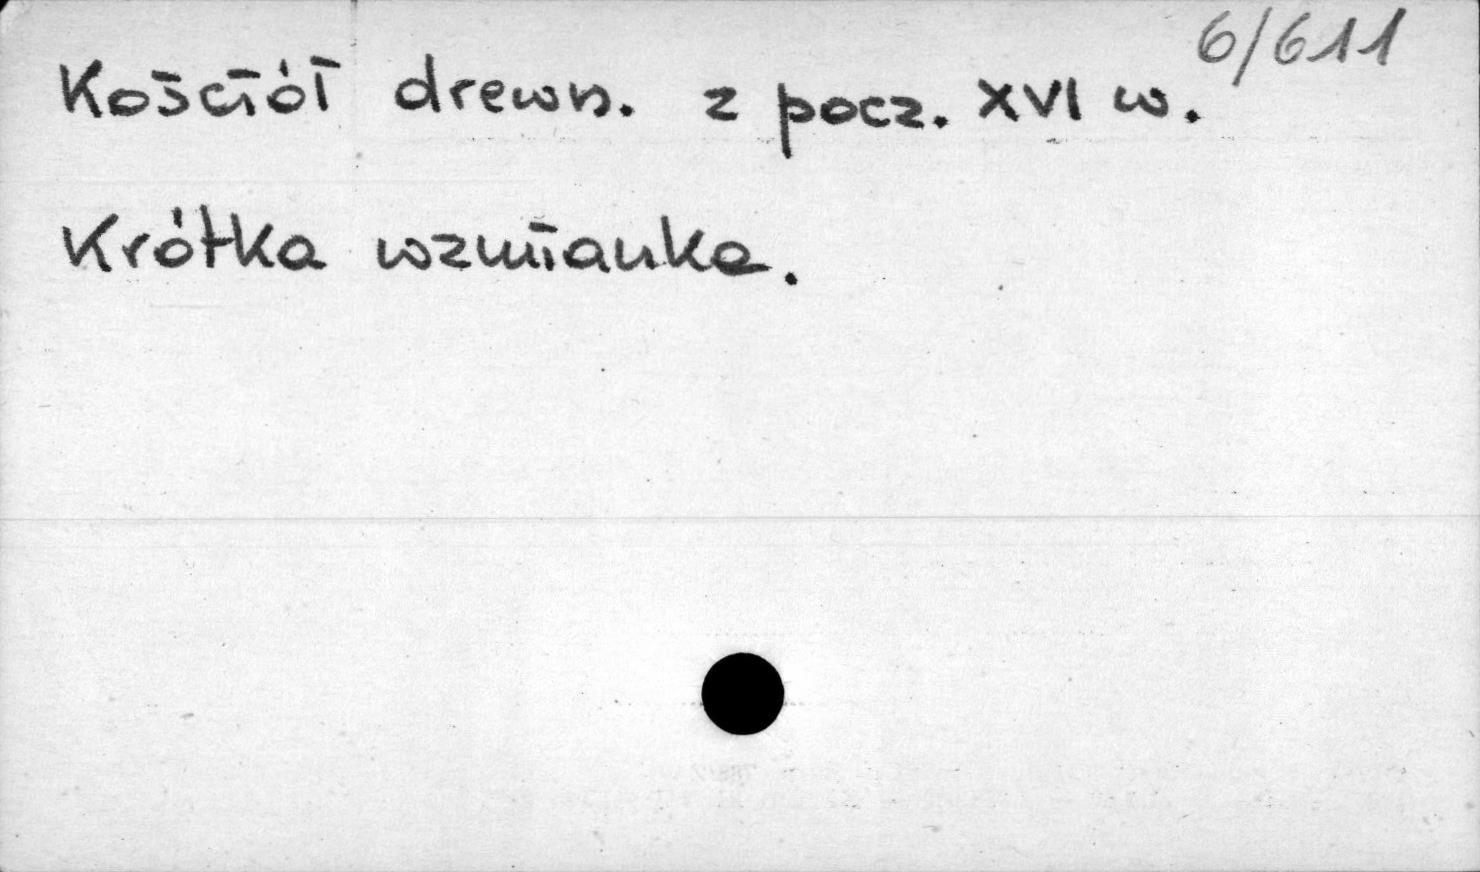 6/611
Kościół drewn. z pocz. XVI w.
Krótka wzmianka.